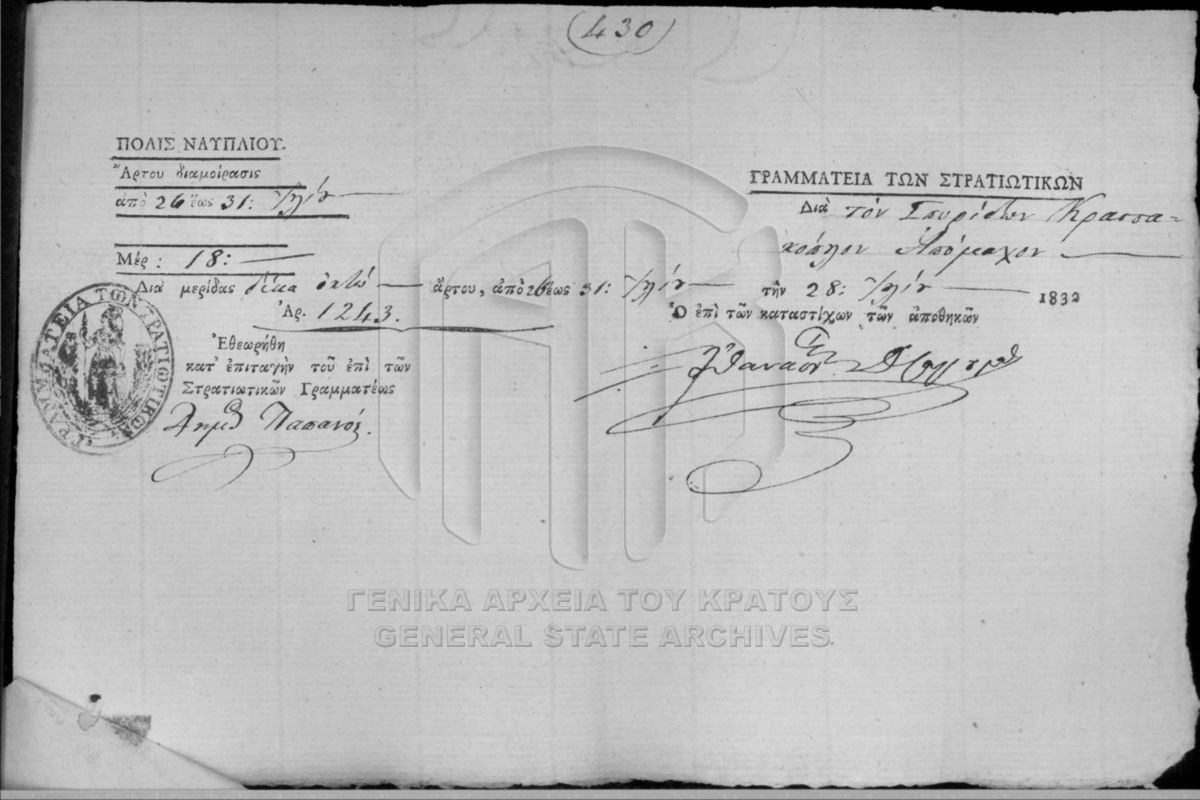 (430)
ΠΟΛΙΣ ΝΑΥΠΛΙΟΥ.
Ἄρτου διαμοίρασις
ἀπὸ 26 ἕως 31: Ἰουλίου
Μέρ: 18:
ΓΡΑΜΜΑΤΕΙΑ ΤΩΝ ΣΤΡΑΤΙΩΤΙΚΩΝ
Διὰ τόν Σπυρίδων
Ἀπόμαχον
Διὰ μερίδας δέκα ὀκτώ ἄρτου, ἀπὸ 26 ἕως 31: Ἰουλίου τὴν 28: Ἰουλίου 1832
Ἀρ. 1243.
Ὁ ἐπὶ τῶν καταστίχων τῶν ἀποθηκῶν
Ἐθεωρήθη
κατ' ἐπιταγὴν τοῦ ἐπὶ τῶν
Στρατιωτικῶν Γραμματέως
ΓΡΑΜΜΑΤΕΙΑ ΤΩΝ ΣΤΡΑΤΙΩΤΙΚΩΝ
ΓΕΝΙΚΑ ΑΡΧΕΙΑ ΤΟΥ ΚΡΑΤΟΥΣ
GENERAL STATE ARCHIVES